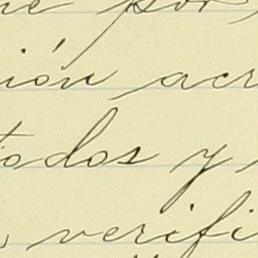 ne por
ión acr
todos y
, verifi